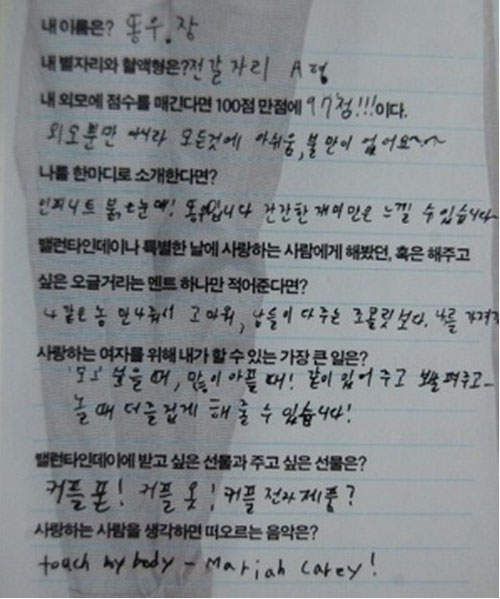 내 이름은? 동우.장
내 별자리와 혈액형은? 전갈자리 A형
내 외모에 점수를 매긴다면 100점 만점에 97점!!!이다.
외모뿐만 아니라 모든것에 아쉬움, 불만이 없어요~~
나를 한마디로 소개한다면?
인피니트 붉은눈매! 동우입니다 간간한 재미만은 느낄 수 있습니다~
밸런타인데이나 특별한 날에 사랑하는 사람에게 해봤던, 혹은 해주고
싶은 오글거리는 멘트 하나만 적어준다면?
나같은 놈 만나줘서 고마워, 남들이 다주는 초콜릿보다. 나를 가져
사랑하는 여자를 위해 내가 할 수 있는 가장 큰 일은?
보고싶을 때, 많이 아플 때! 같이 있어 주고 보살펴주고~
놀 때 더 즐겁게 해 줄 수 있습니다!
밸런타인데이에 받고 싶은 선물과 주고 싶은 선물은?
커플폰! 커플 옷! 커플 전자제품?
사랑하는 사람을 생각하면 떠오르는 음악은?
touch my body - Mariah carey!